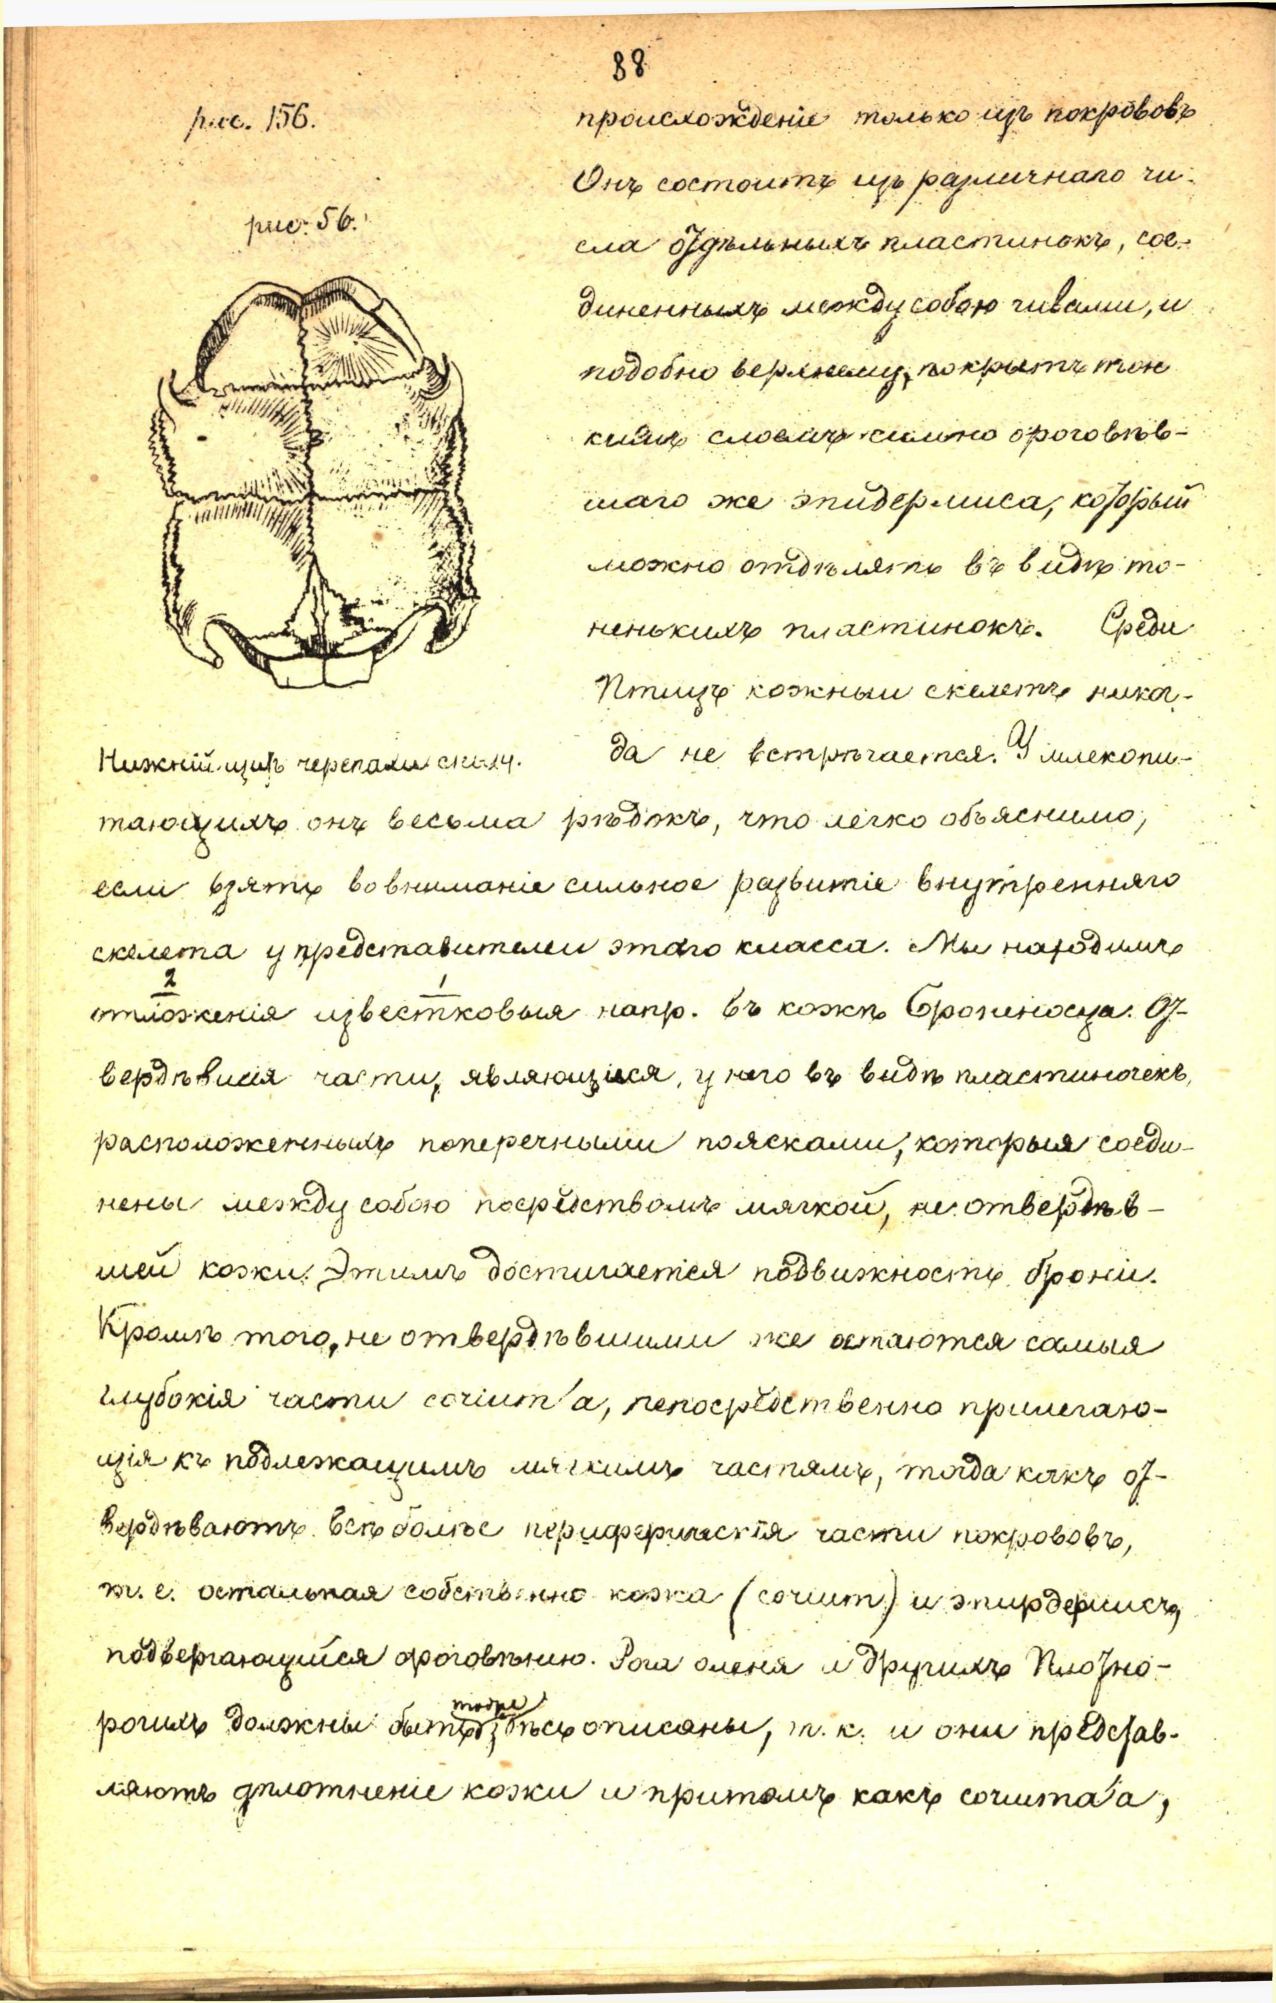 88
рис. 156.
рис. 56.
происхожденіе только изъ покрововъ
Онъ состоитъ изъ различнаго чи-
сла отдѣльныхъ пластинокъ, сое-
диненныхъ между собою швами, и
подобно верхнему, покрытъ тон
кимъ слоемъ сильно ороговѣв-
шаго же эпидермиса, который
можно отдѣлять въ видѣ то-
ненькихъ пластинокъ. Среди
Птицъ кожный скелетъ никог-
Нижній щитъ черепахи снизу.
да не встрѣчается. У млекопи-
тающихъ онъ весьма рѣдокъ, что легко объяснимо,
если взять во вниманіе сильное развитіе внутренняго
скелета у представителей этого класса. Мы находимъ
2 1
отложенія известковыя напр. въ кожѣ Броненосца. От-
вердѣвшія части, являющіеся, у него въ видѣ пластиночекъ,
расположенныхъ поперечными поясками, которыя соеди-
нены между собою посредствомъ мягкой, не отвердѣв-
шей кожи. Этимъ достигается подвижность брони.
Кромѣ того, не отвердѣвшими же остаются самыя
глубокія части corium'а, непосредственно прилегаю-
щія къ подлежащимъ мягкимъ частямъ, тогда какъ от-
вердѣваютъ всѣ болѣе периферическія части покрововъ,
т. е. остальная собственно кожа (corium) и эпирдермисъ,
подвергающийся ороговѣнію. Рога оленя и другихъ Плотно-
тоже
рогихъ должны быть здѣсь описаны, т. к. и они представ-
ляютъ уплотненіе кожи и притомъ какъ coriuma'а,